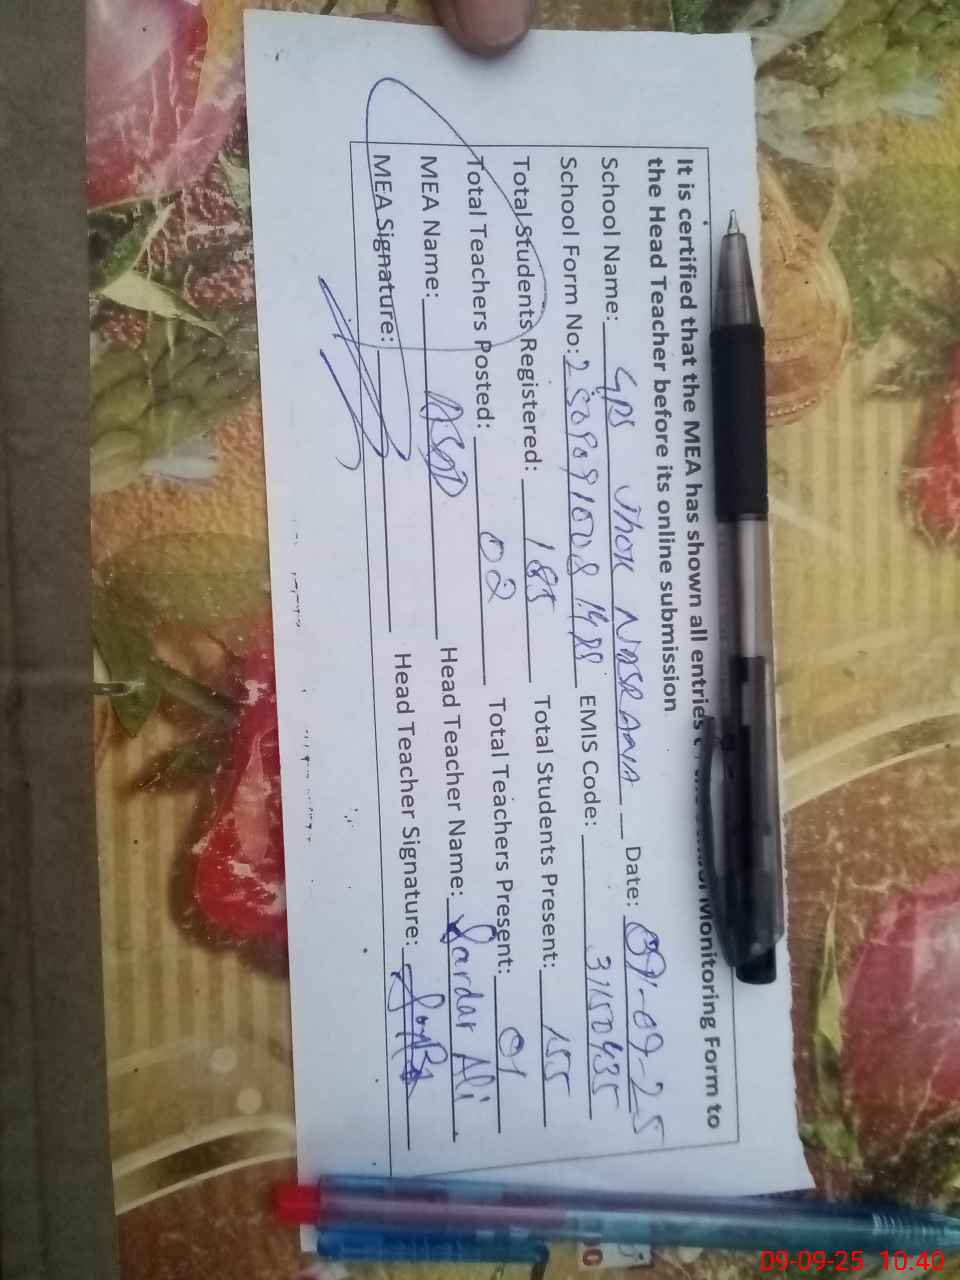 It is certified that the MEA has shown all entries Monitoring Form to
the Head Teacher before its online submission
School Name: GPS Jhok NASRANA Date: 09-09-25
School Form No: EMIS Code: 31150435
Total Students Registered: 185 Total Students Present: 155
Total Teachers Posted: 02 Total Teachers Present: 01
MEA Name: ASAD Head Teacher Name: Sardar Ali
MEA Signature: Head Teacher Signature:
09-09-25 10:40